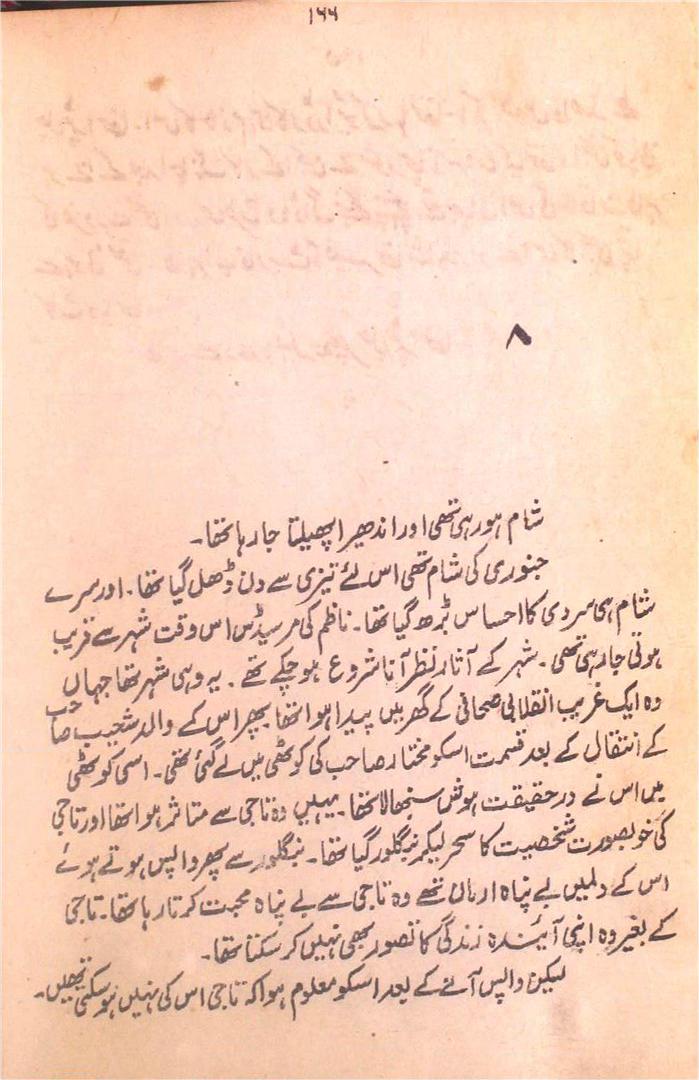 ۱۶۶
۸
شام ہو رہی تھی اور اندھیرا پھیلتا جا رہا تھا۔
جنوری کی شام تھی اس لئے تیزی سے دن ڈھل گیا تھا۔ اور سرے
شام ہی سردی کا احساس بڑھ گیا تھا۔ ناظم کی مرسیڈس اس وقت شہر سے قریب
ہوتی جا رہی تھی۔ شہر کے آثار نظر آنا شروع ہو چکے تھے۔ یہ وہی شہر تھا جہاں
وہ ایک غریب انقلابی صحافی کے گھر میں پیدا ہوا تھا پھر اس کے والد شعیب صاحب
کے انتقال کے بعد قسمت اسکو مختار صاحب کی کوٹھی میں لے گئی تھی۔ اسی کوٹھی
میں اس نے درحقیقت ہوش سنبھالا تھا۔ یہیں وہ تاجی سے متاثر ہوا تھا اور تاجی
کی خوبصورت شخصیت کا سحر لیکر بنگلور گیا تھا۔ بنگلور سے پھر واپس ہوتے ہوئے
اس کے دلمیں بے پناہ ارمان تھے وہ تاجی سے بے پناہ محبت کرتا رہا تھا۔ تاجی
کے بغیر وہ اپنی آئیندہ زندگی کا تصور بھی نہیں کر سکتا تھا۔
لیکن واپس آنے کے بعد اسکو معلوم ہوا کہ تاجی اس کی نہیں ہو سکتی تھیں۔